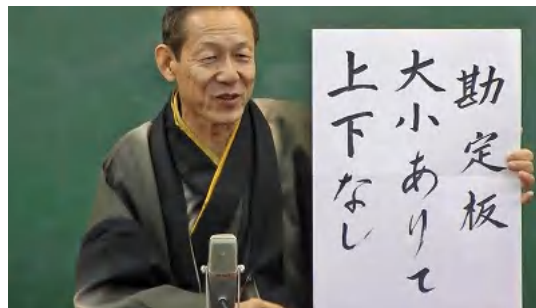 勘定板
大小ありて
上下なし